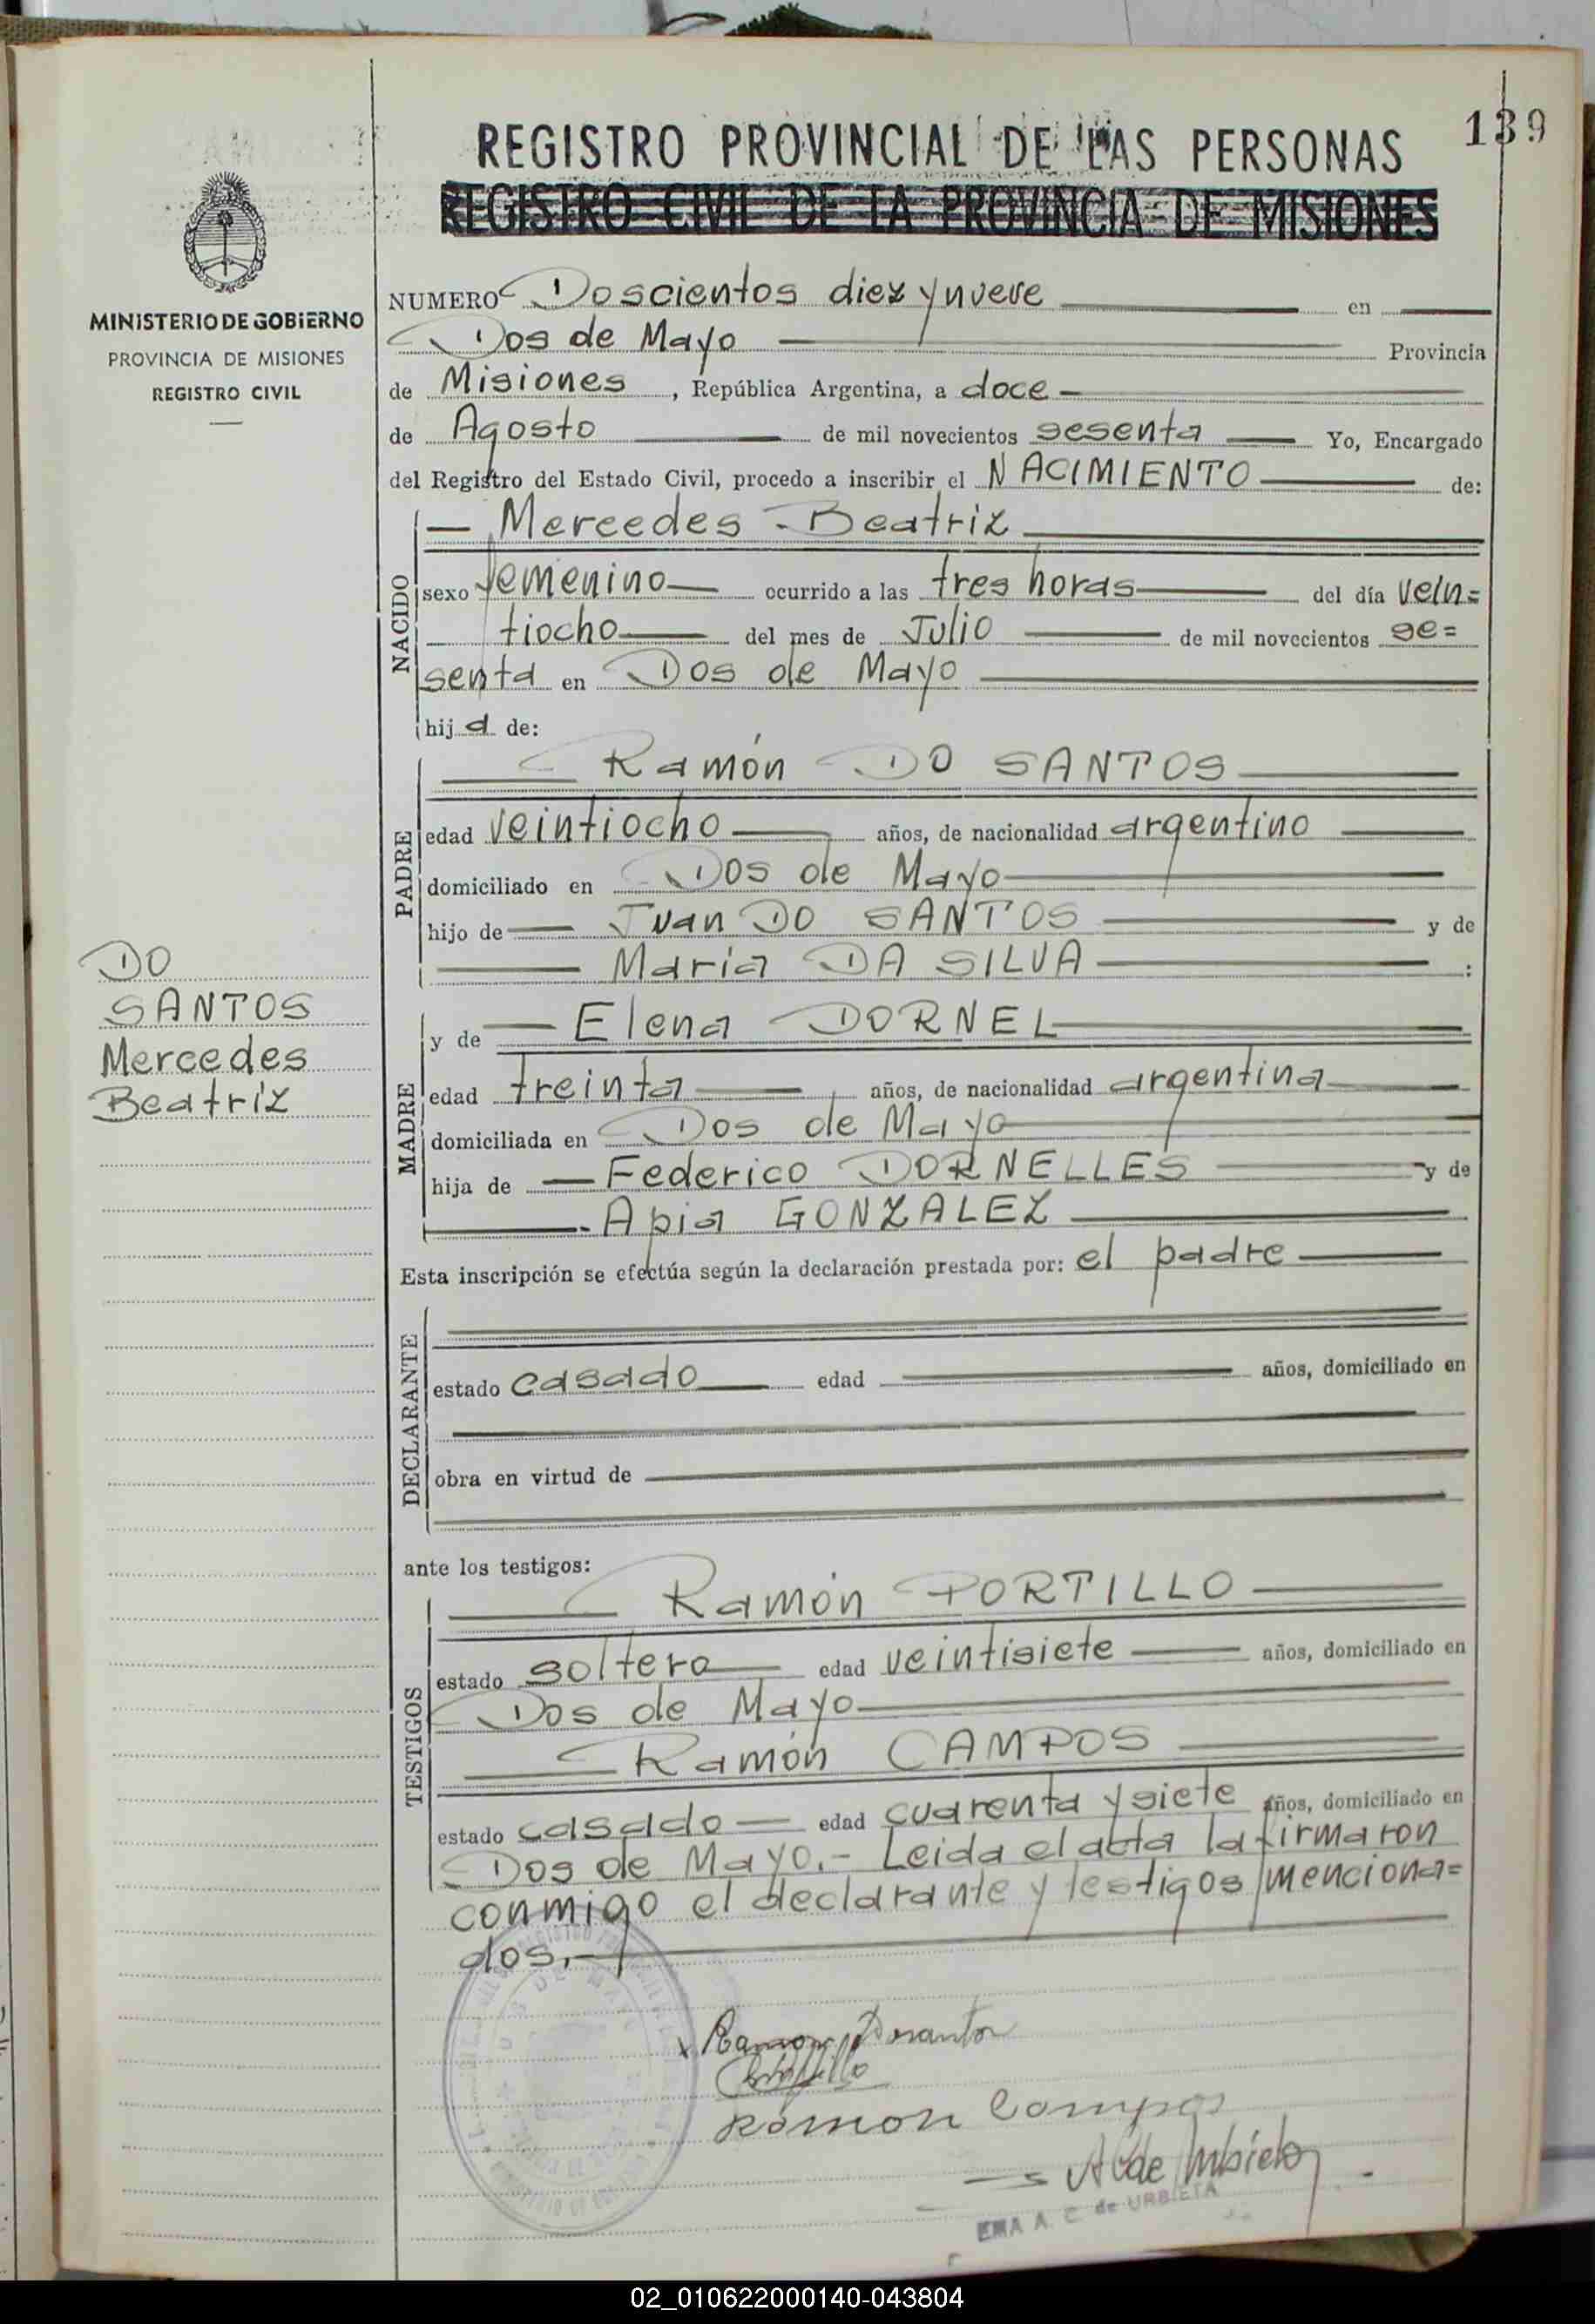 139
REGISTRO PROVINCIAL DE LAS PERSONAS
REGISTRO CIVIL DE LA PROVINCIA DE MISIONES
MINISTERIO DE GOBIERNO
PROVINCIA DE MISIONES
REGISTRO CIVIL
NUMERO Doscientos diez y nueve en
Dos de Mayo Provincia
de Misiones, República Argentina, a doce
de Agosto de mil novecientos sesenta Yo, Encargado
del Registro del Estado Civil, procedo a inscribir el NACIMIENTO de:
NACIDO
Mercedes Beatriz
sexo femenino ocurrido a las tres horas del día vein=
tiocho del mes de Julio de mil novecientos se=
senta en Dos de Mayo
hija de:
PADRE
Ramón DO SANTOS
edad veintiocho años, de nacionalidad argentino
domiciliado en Dos de Mayo
hijo de Juan DO SANTOS y de
Maria DA SILVA :
DO
SANTOS
Mercedes
Beatriz
MADRE
y de Elena DORNEL
edad treinta años, de nacionalidad argentina
domiciliada en Dos de Mayo
hija de Federico DORNELLES y de
Apia GONZALEZ
Esta inscripción se efectúa según la declaración prestada por: el padre
DECLARANTE
estado casado edad años, domiciliado en
obra en virtud de
ante los testigos:
TESTIGOS
Ramón PORTILLO
estado soltero edad veintisiete años, domiciliado en
Dos de Mayo
Ramón CAMPOS
estado casado edad cuarenta y siete años, domiciliado en
Dos de Mayo.- Leida el acta la firmaron
conmigo el declarante y testigos menciona=
dos.-
Ramon Dosantos
Ramon Campos
EMA A. C. de URBIETA
02_010622000140-043804